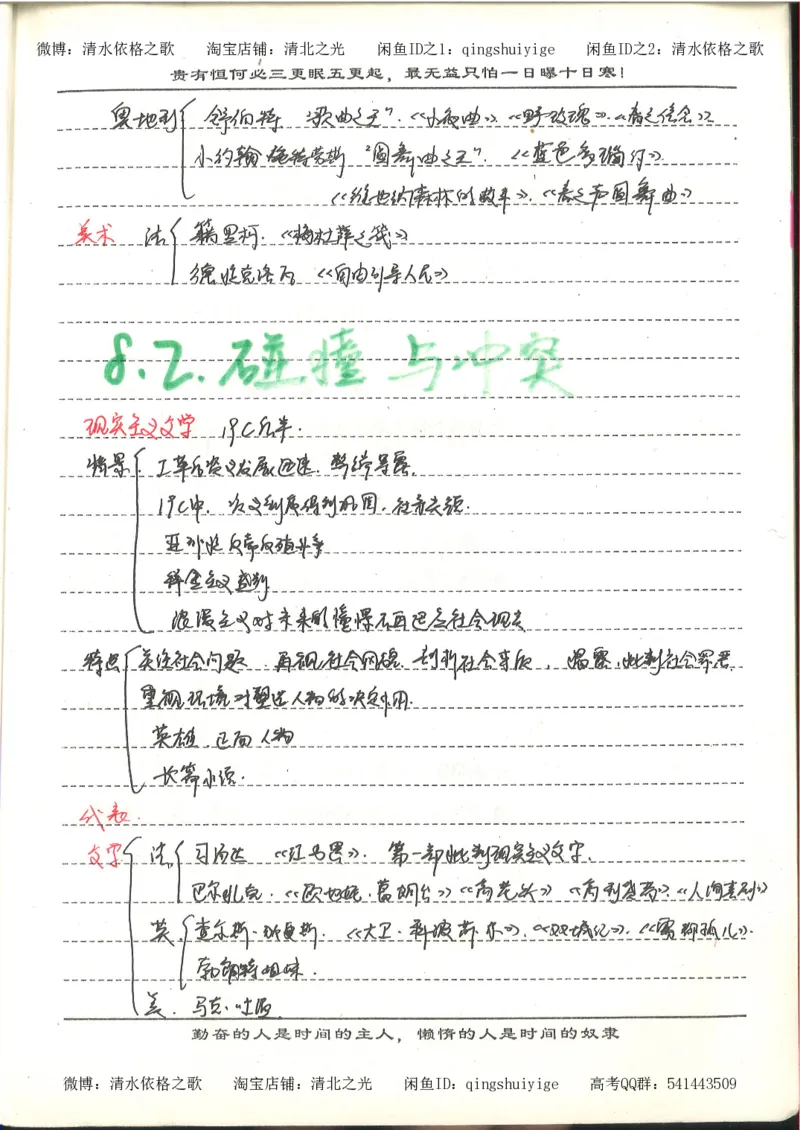 微博：清水依格之歌 淘宝店铺：清北之光 闲鱼ID之1：qingshuiyige 闲鱼ID之2：清水依格之歌
贵有恒何必三更眠五更起，最无益只怕一日曝十日寒！
奥地利 舒伯特 "歌曲之王"．《小夜曲》．《野玫瑰》．《春之信念》
小约翰·施特劳斯 "圆舞曲之王"．《蓝色多瑙河》．
《维也纳森林的故事》．《春之声圆舞曲》
美术 法 籍里柯．《梅杜萨之筏》
德拉克洛瓦 《自由引导人民》
8.2.碰撞与冲突
现实主义文学 19C后半．
背景 工革后资义发展迅速．弊端暴露．
19C中．资义制度得到巩固．社会
亚非拉反帝反殖斗争
科学主义
浪漫主义对未来的憧憬不再迎合社会现实
特点 关注社会问题 再现社会风貌．剖析社会本质，揭露，批判社会罪恶．
重视环境对塑造人物的决定作用．
英雄．正面人物
长篇小说．
代表．
文学 法 司汤达 《红与黑》．第一部批判现实主义文学．
巴尔扎克．《欧也妮·葛朗台》《高老头》《人间喜剧》
英．查尔斯·狄更斯．《大卫·科波菲尔》．《双城记》．《雾都孤儿》．
勃朗特姐妹．
美．马克·吐温
勤奋的人是时间的主人，懒惰的人是时间的奴隶
微博：清水依格之歌 淘宝店铺：清北之光 闲鱼ID：qingshuiyige 高考QQ群：541443509